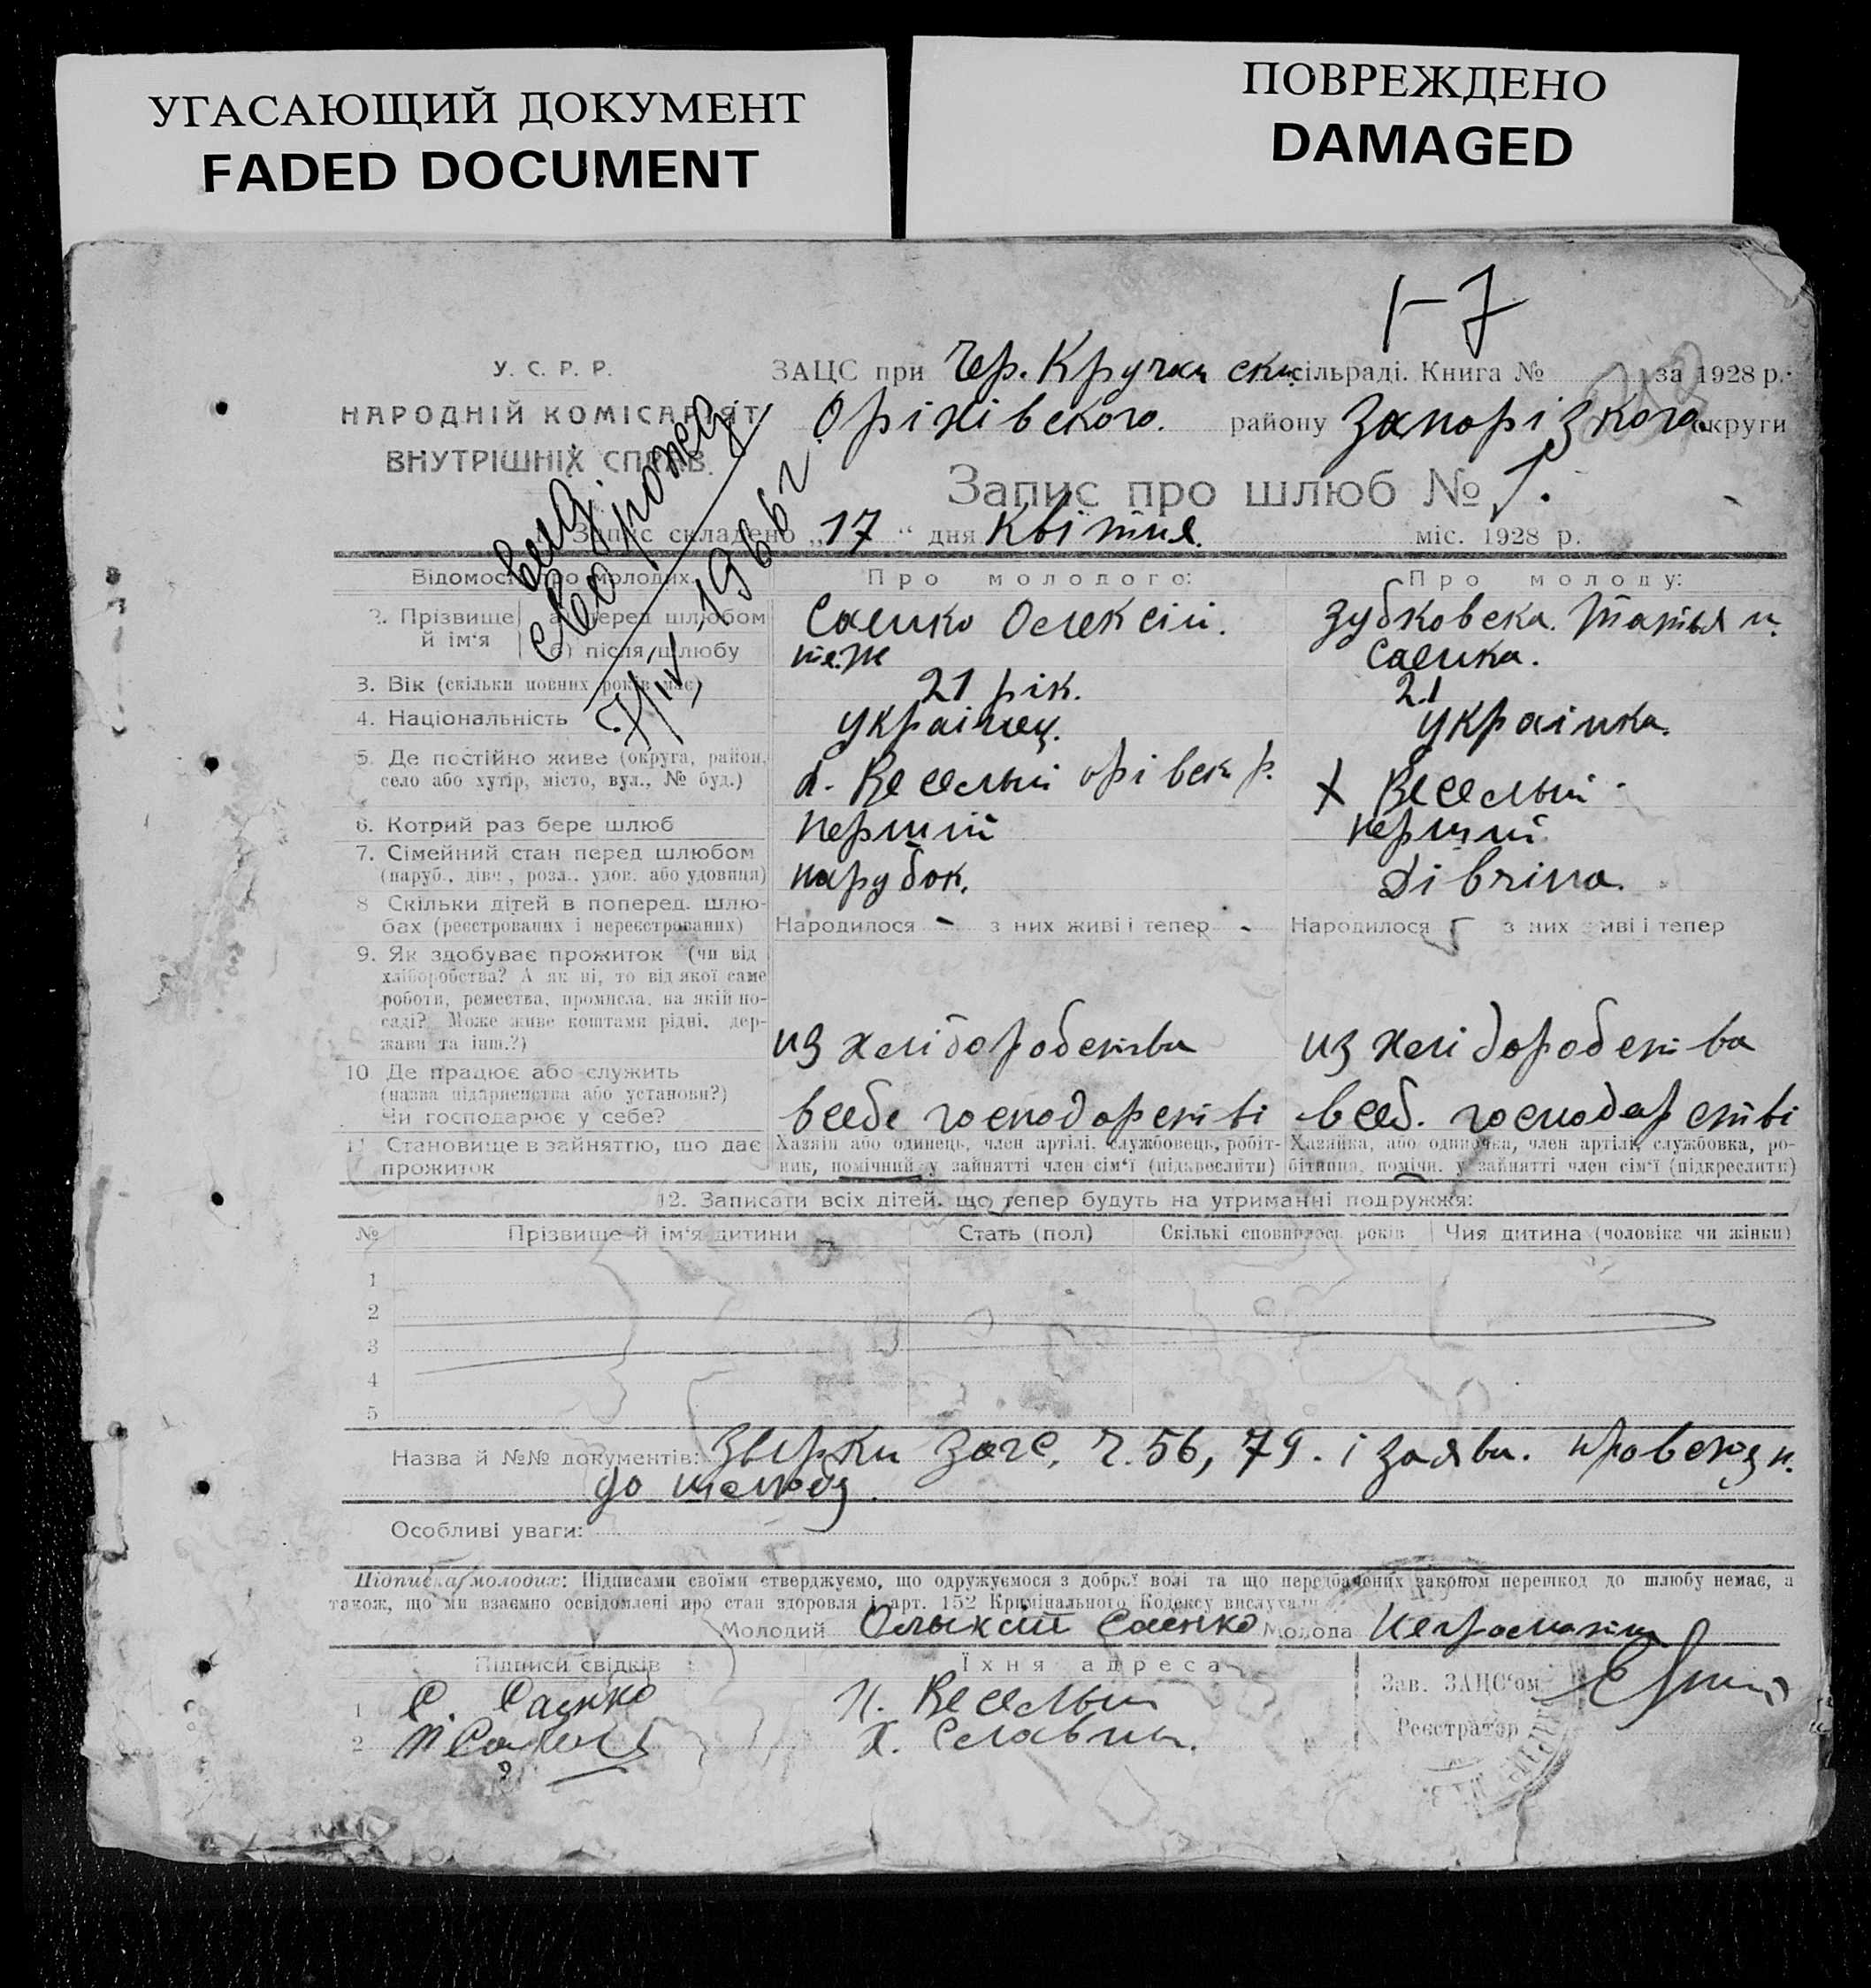 УГАСАЮЩИЙ ДОКУМЕНТ
FADED DOCUMENT
ПОВРЕЖДЕНО
DAMAGED
1-7
У. С. Р. Р.
НАРОДНІЙ КОМІСАРІЯТ
ВНУТРІШНІХ СПРАВ.
ЗАЦС при Чер. Кручан ськ. сільраді. Книга № за 1928 р.
Оріхівського. району Запорізького округи
Запис про шлюб № 1.
Запис складено „17“ дня Квітня. міс. 1928 р.
7/IV 1966 г.
Відомості про молодих. Про молодого: Про молоду:
2. Прізвище й ім‘я
а) перед шлюбом Саенко Олексій. Зубковська. Татья н.
б) після шлюбу теж Саенка.
3. Вік (скільки повних років має) 21 рік. 21
4. Національність Українец. Українка.
5. Де постійно живе (округа, район, село або хутір, місто, вул., № буд.) х. Веселый орівськ р. Х Веселый
6. Котрий раз бере шлюб перший перший
7. Сімейний стан перед шлюбом (паруб., дівч., розл., удов. або удовиця) парубок. дівчіна.
8 Скільки дітей в поперед. шлюбах (реєстрованих і нереєстрованих) Народилося - з них живі і тепер - Народилося з них живі і тепер
9. Як здобуває прожиток (чи від
хліборобства? А як ні, то від якої саме
роботи, ремества, промисла, на якій по-
саді? Може живе коштами рідні, дер-
жави та інш.?) из хліборобства из хліборобства
10 Де працює або служить
(назва підприємства або установи?)
Чи господарює у себе? всебе господарстві всеб. господарстві
11 Становище в зайняттю, що дає прожиток
Хазяїн або одинець, член артілі, службовець, робіт-
ник, помічний у зайнятті член сім‘ї (підкреслити)
Хазяйка, або одиночка, член артілі, службовка, ро-
бітниця, помічн. у зайнятті член сім‘ї (підкреслити)
12. Записати всіх дітей, що тепер будуть на утриманні подружжя:
№ Прізвище й ім‘я дитини Стать (пол) Скількі сповнилось років Чия дитина (чоловіка чи жінки)
1
2
3
4
5
Назва й №№ документів: загс, ч. 56, 79. і заяви.
до шлюбу.
Особливі уваги:
Підписка молодих: Підписами своїми стверджуємо, що одружуємося з доброї волі та що передбачених законом перешкод до шлюбу немає, а
також, що ми взаємно освідомлені про стан здоровля і арт. 152 Кримінального Кодексу вислухали
Молодий Олыксій Саенко Молода Неграмотна
Підписи свідків Їхня адреса
1 С. Саенко Х. Веселый
2 Х. Славны.
Зав. ЗАЦС‘ом
Реєстратор